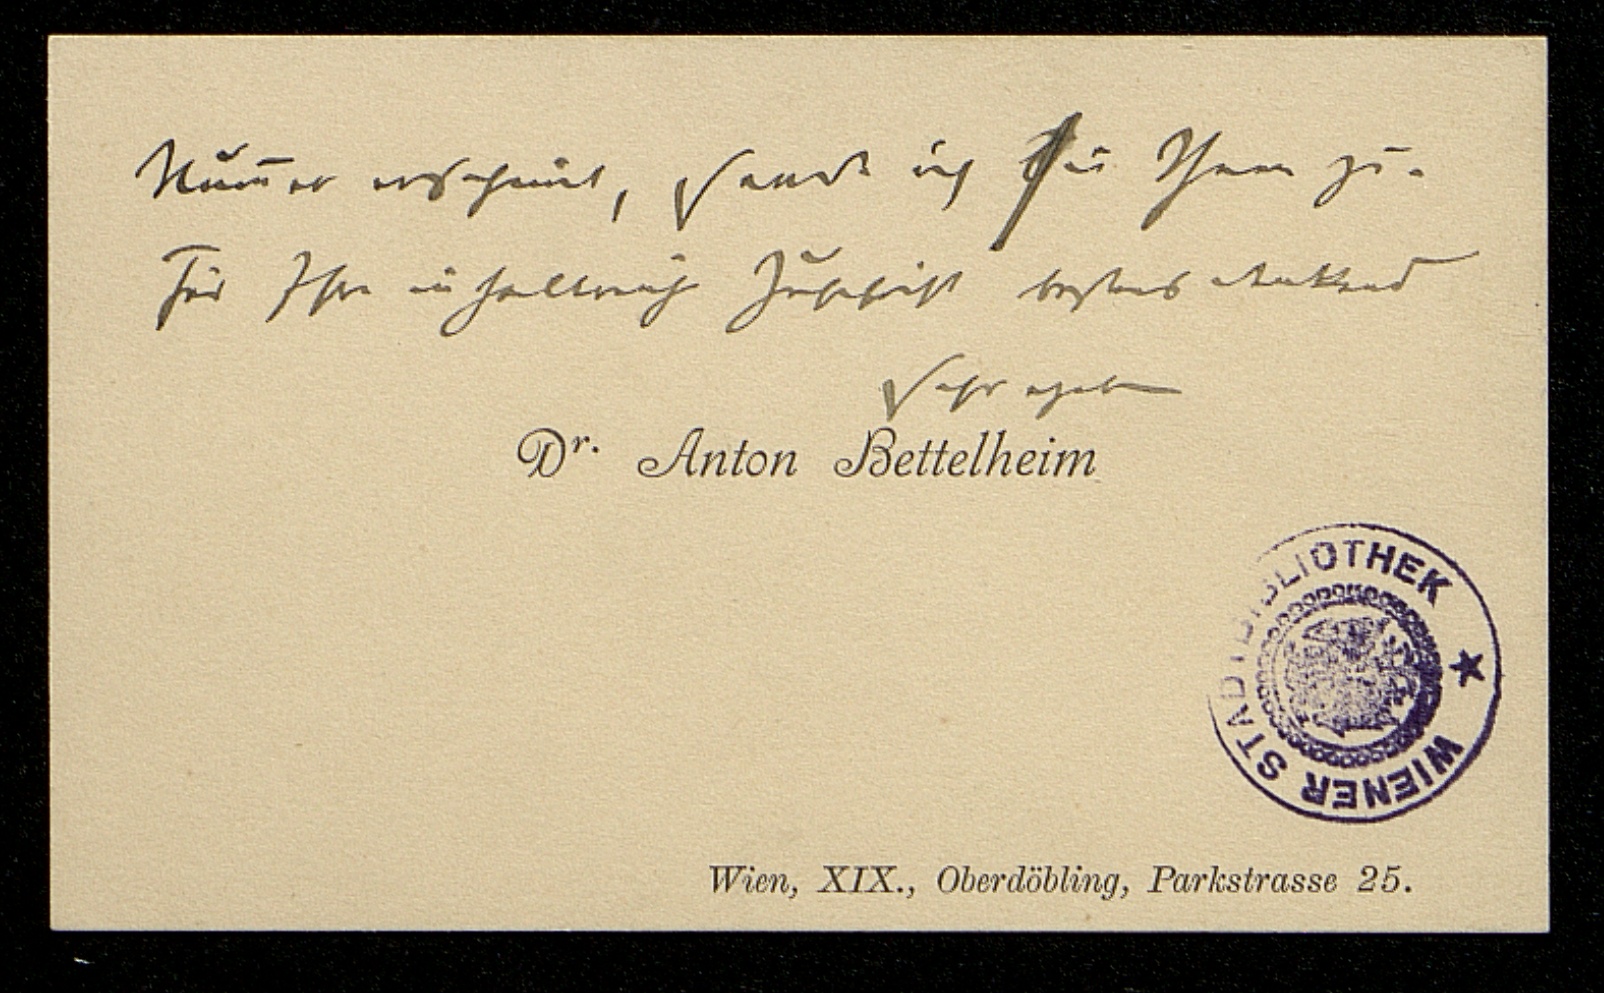 Nummer erscheint, sende ich sie Ihnen zu.
Für Ihre inhaltreiche Zuschrift bestens dankend
Sehr ergeben
Dr. Anton Bettelheim
WIENER STADTBIBLIOTHEK
Wien, XIX., Oberdöbling, Parkstrasse 25.